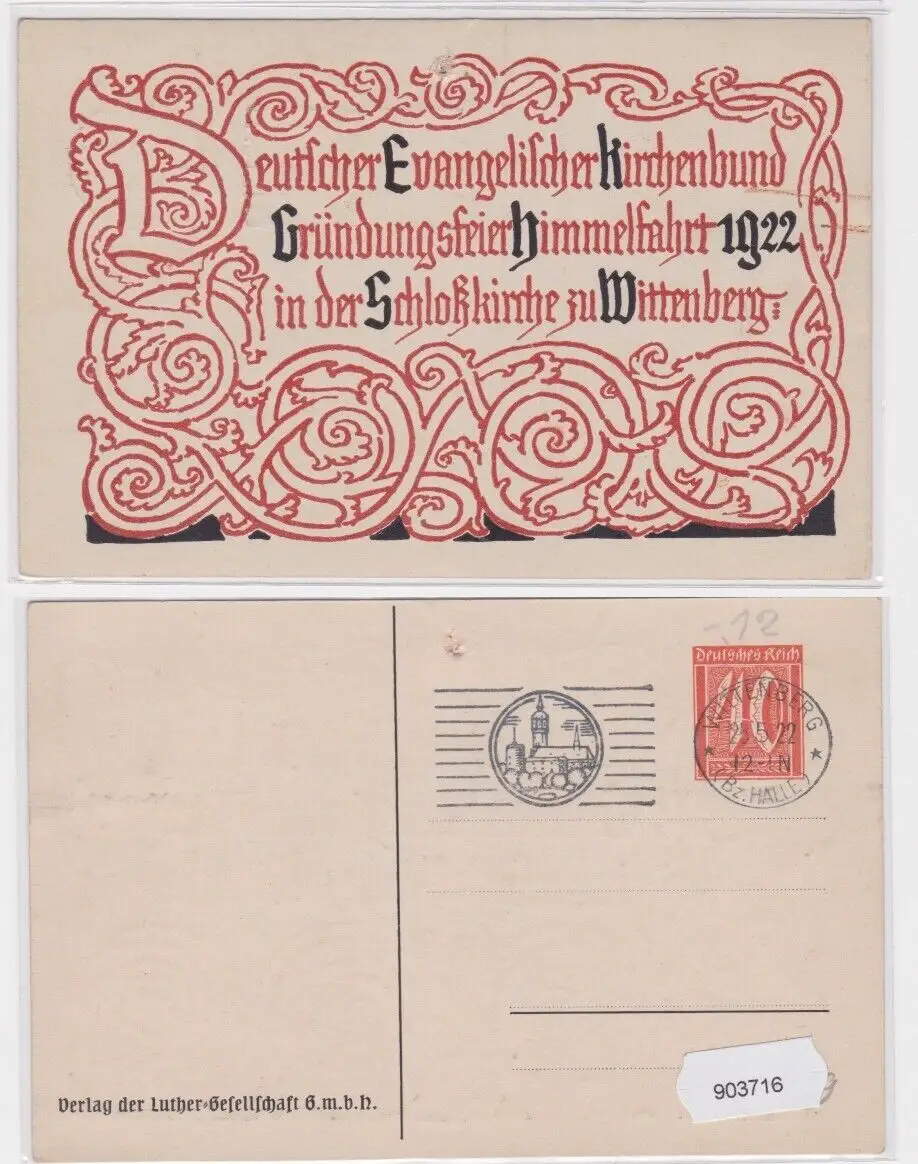 Deutscher Evangelischer Kirchenbund
Gründungsfeier Himmelfahrt 1922
in der Schloßkirche zu Wittenberg
-,12
Deutsches Reich
40
WITTENBERG
25.5.22
12-1N
(BZ. HALLE)
Verlag der Luther-Gesellschaft G.m.b.H.
903716